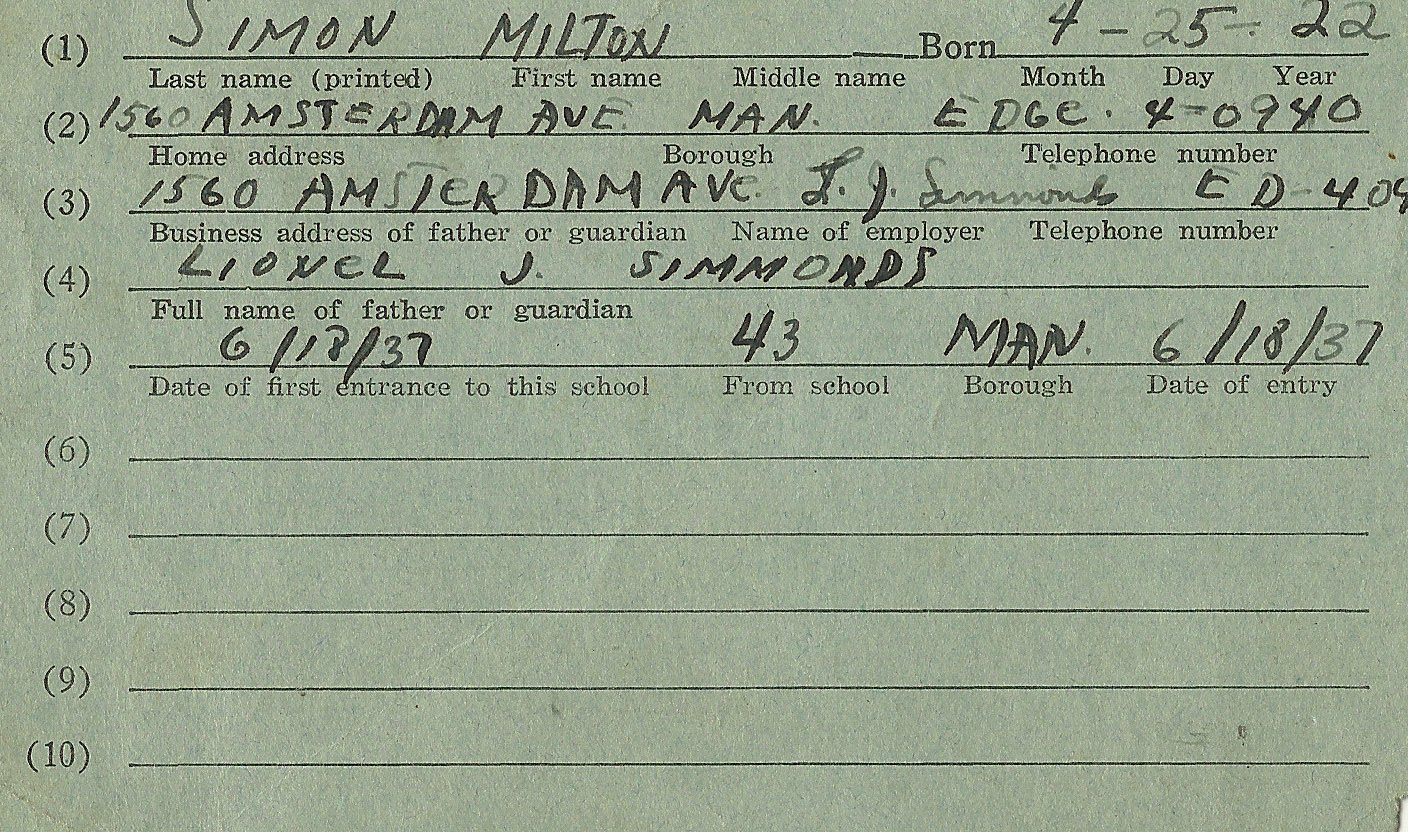 (1) SIMON MILTON Born 4-25-22
Last name (printed) First name Middle name Month Day Year
(2) 1560 AMSTERDAM AVE. MAN. EDGE. 4-0940
Home address Borough Telephone number
(3) 1560 AMSTERDAM AVE. L. J. Simmonds ED-409
Business address of father or guardian Name of employer Telephone number
(4) LIONEL J. SIMMONDS
Full name of father or guardian
(5) 6/18/37 43 MAN. 6/18/37
Date of first entrance to this school From school Borough Date of entry
(6)
(7)
(8)
(9)
(10)